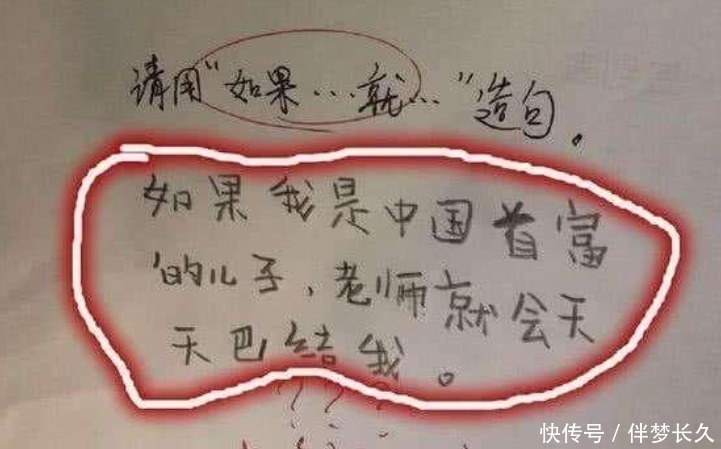 请用“如果…就…”造句。
如果我是中国首富
的儿子，老师就会天
天巴结我。
？？？
快传号 / 伴梦长久